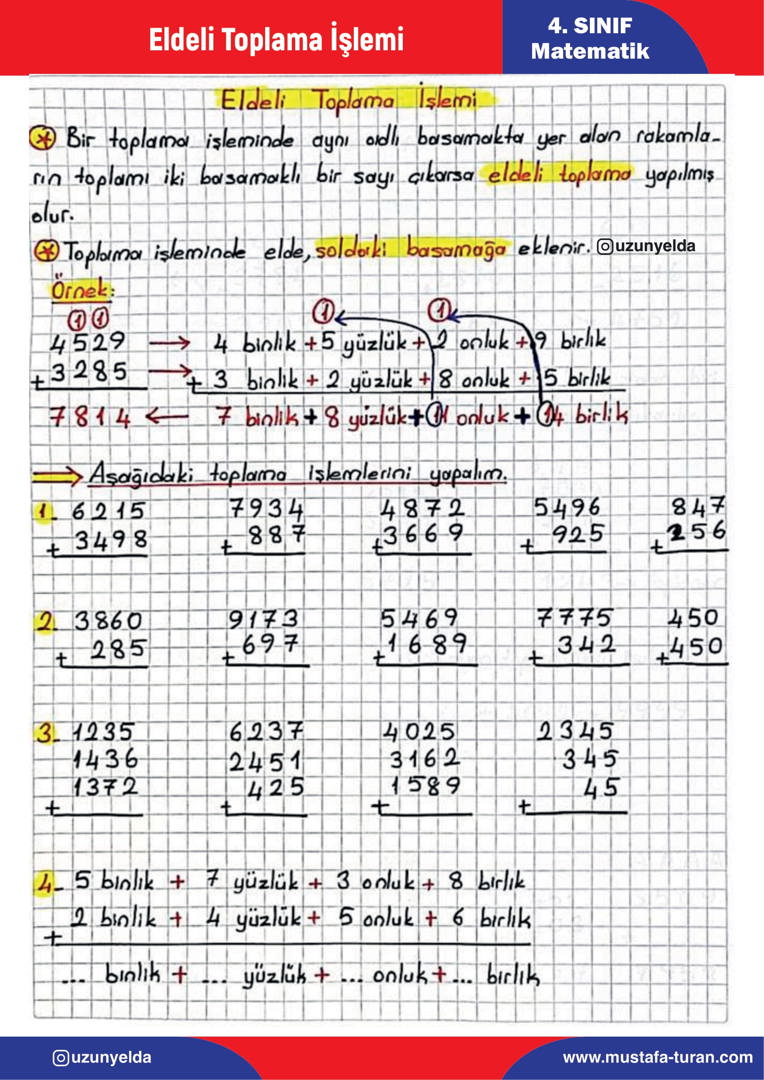 Eldeli Toplama İşlemi
4. SINIF
Matematik
Eldeli Toplama İşlemi
Bir toplama işleminde aynı adlı basamakta yer alan rakamla-
rın toplamı iki basamaklı bir sayı çıkarsa eldeli toplama yapılmış
olur.
Toplama işleminde elde, soldaki basamağa eklenir. uzunyelda
Örnek:
1 1 1 1
4529 → 4 binlik + 5 yüzlük + 2 onluk + 9 birlik
+3285 → + 3 binlik + 2 yüzlük + 8 onluk + 5 birlik
7814 ← 7 binlik + 8 yüzlük + 11 onluk + 14 birlik
Aşağıdaki toplama işlemlerini yapalım.
1. 6215 7934 4872 5496 847
+ 3498 + 887 +3669 + 925 + 256
2. 3860 9173 5469 7775 450
+ 285 + 697 +1689 + 342 +450
3. 1235 6237 4025 2345
1436 2451 3162 345
1372 425 1589 45
+ + + +
4- 5 binlik + 7 yüzlük + 3 onluk + 8 birlik
2 binlik + 4 yüzlük + 5 onluk + 6 birlik
+
... binlik + ... yüzlük + ... onluk + ... birlik
uzunyelda www.mustafa-turan.com